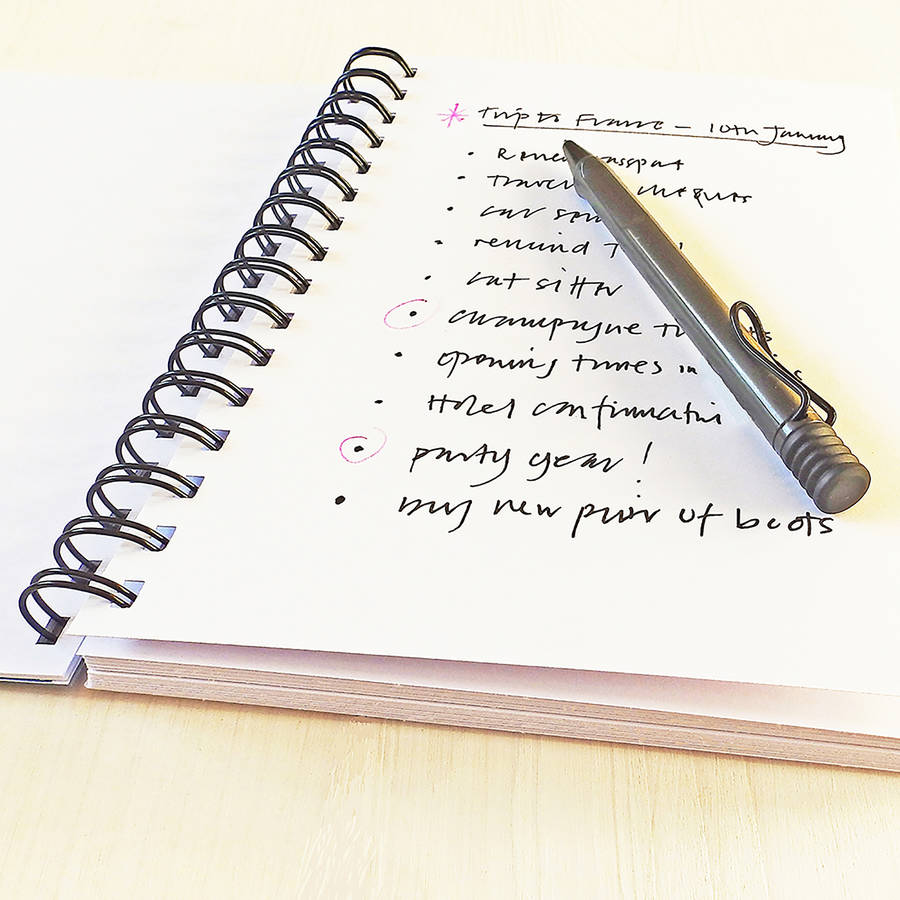 * Trip to France - 10th January
• Renew passport
• Travel cheques
• car
• remind
• cat sitter
• champagne
• opening times in
• Hotel confirmation
• party gear!
• my new pair of boots